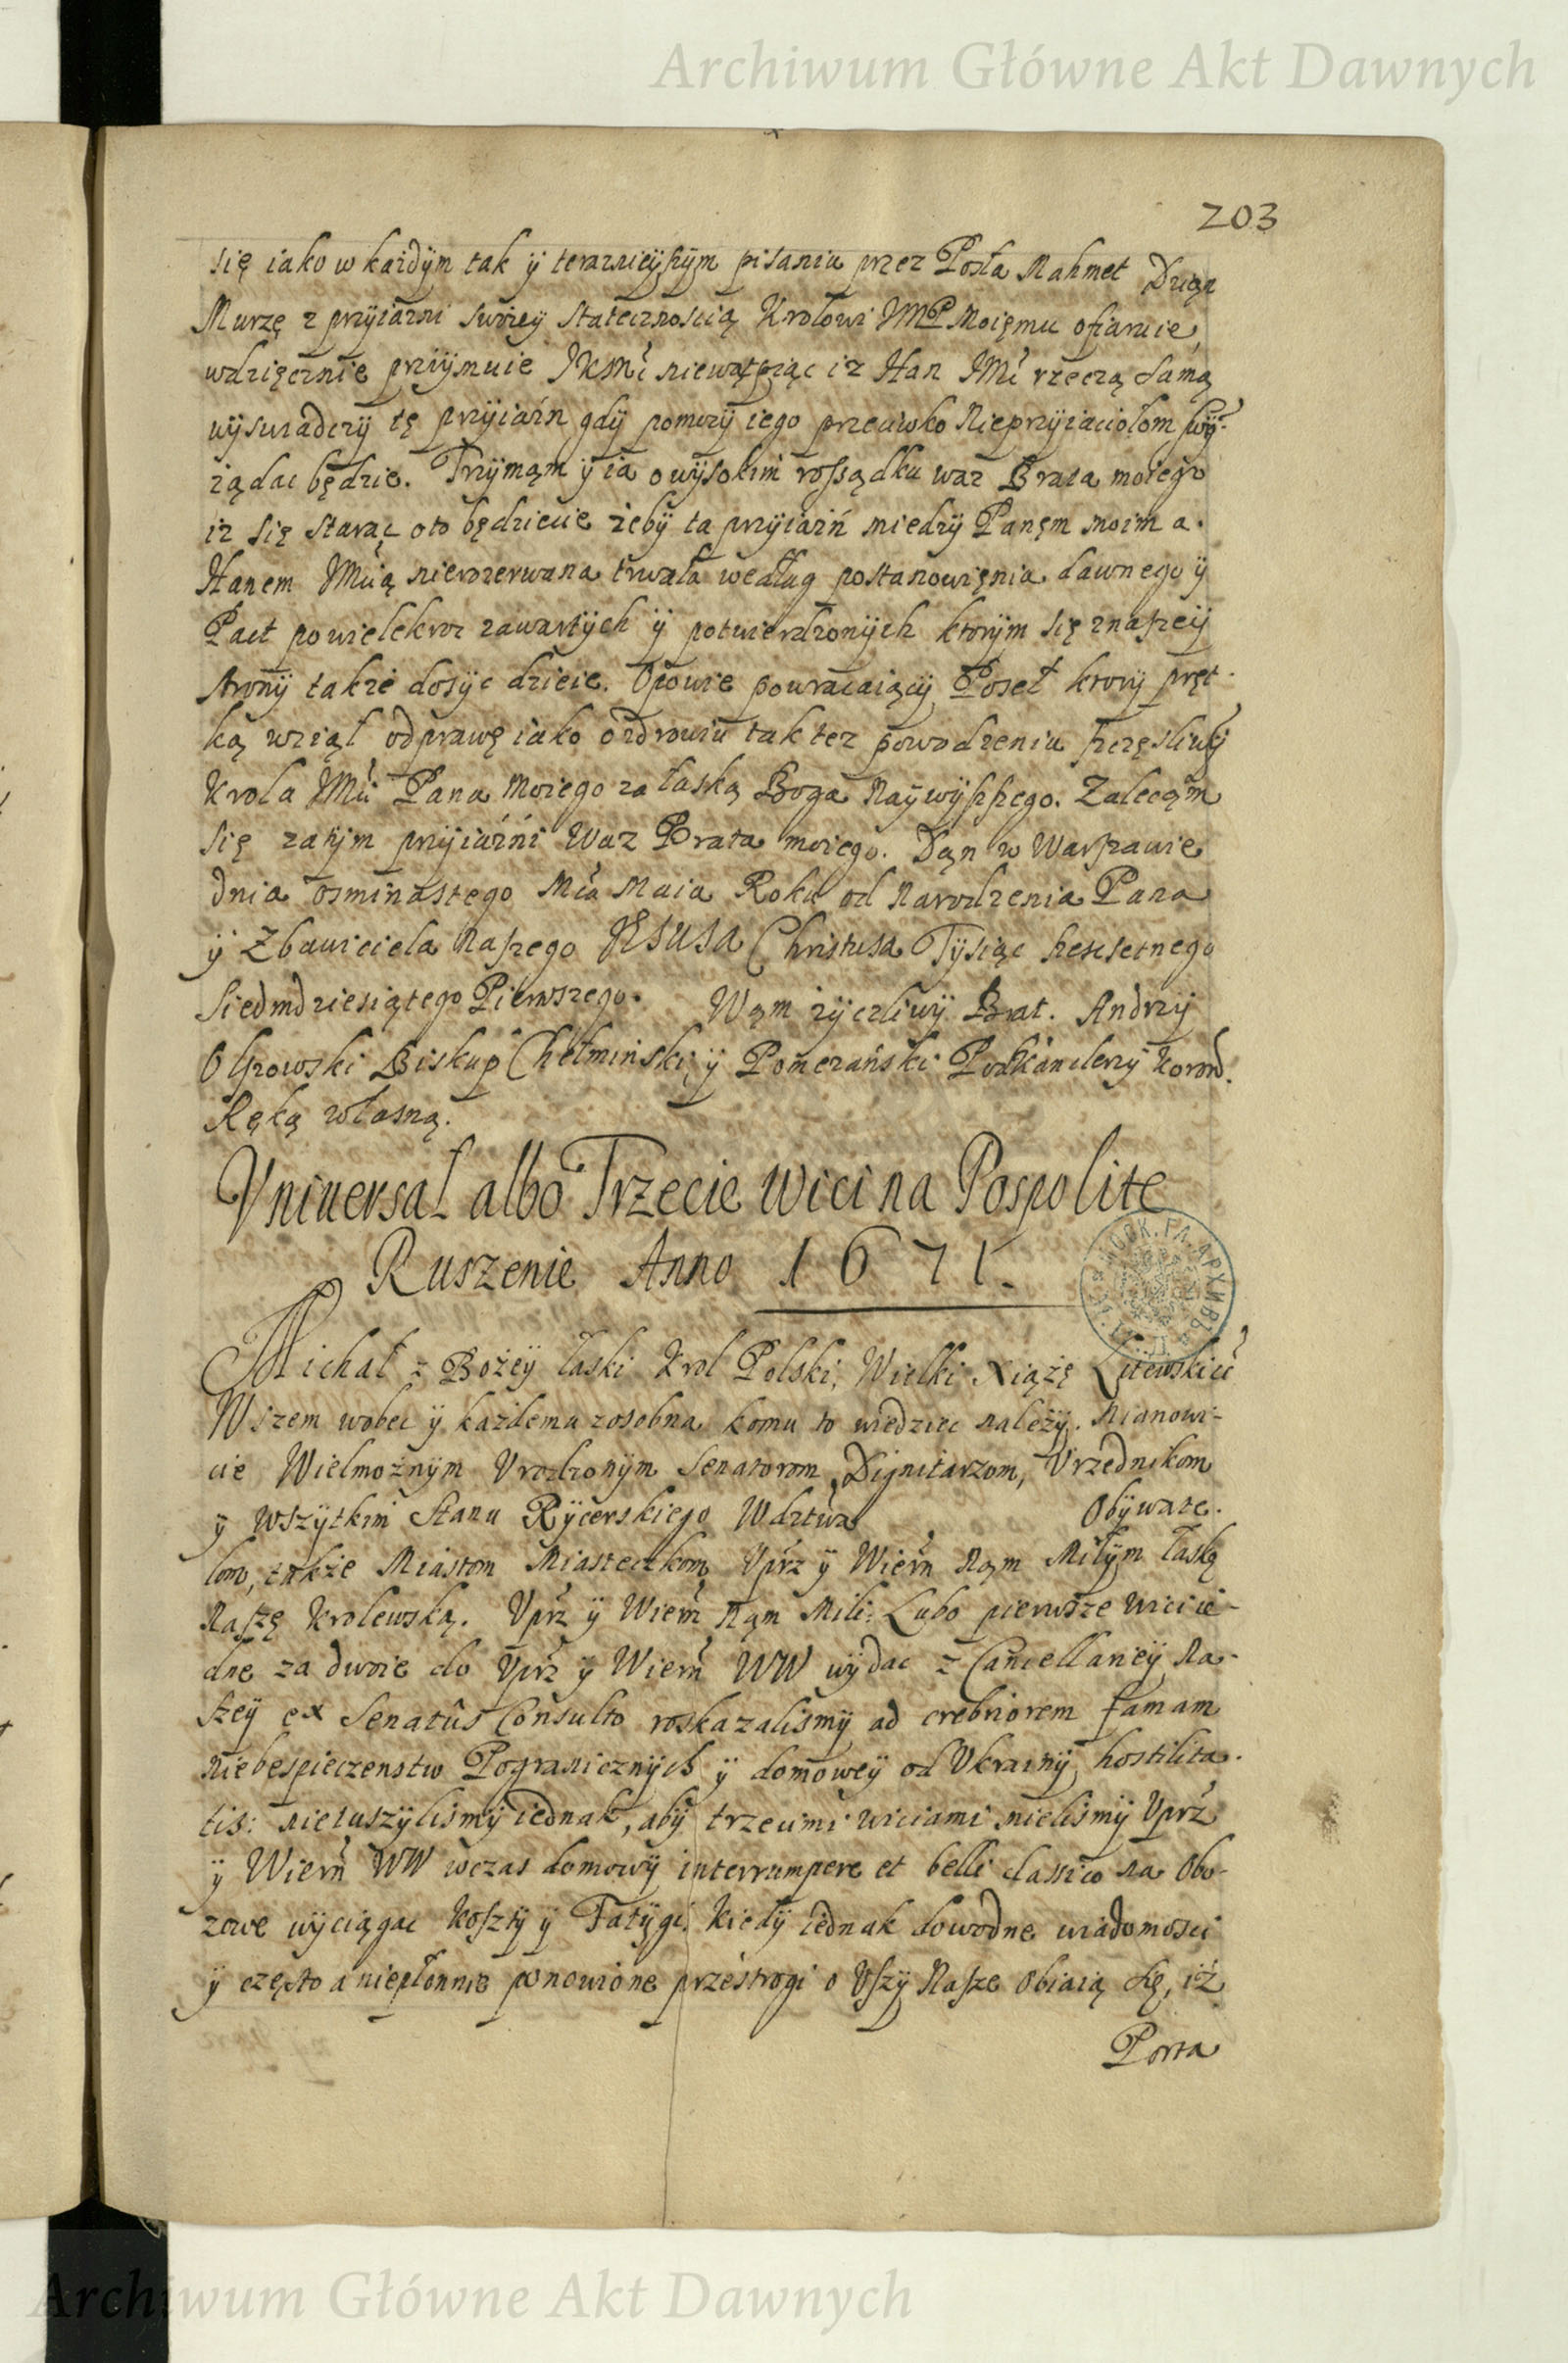 Archiwum Główne Akt Dawnych
203
się iako w kazdym tak ÿ teraznieÿszym pisaniu przez Posła Mahmet
Murzę z przÿiazni swoieÿ statecznoscią Krolowi JMP Moięmu ofiaruie,
wdzięcznie przÿymuie JKMć niewątpiąc iz Han JMć rzeczą samą
wÿswiadczÿ tę przÿiaźn gdÿ pomocÿ iego przeciwko Nieprzÿiaciołom swÿ.
ządac będzie. Trzÿmąm ÿ ia o wÿsokim rossądku wаz Brata moiego
iz się starac oto będziecie żebÿ ta przÿiaźń miedzÿ Panęm moim a.
Hanem JMcią nierozerwana trwała według postanowięnia dawnego ÿ
Pact powielekroc zawartÿch ÿ potwierdzonÿch ktorÿm się z naszeÿ
stronÿ także dosÿc dzieie. Opowie powracaiącÿ Poseł ktorÿ pręt-
ką wziął odprawę iako o zdrowiu tak tez powodzeniu szczęsliwÿ
Krola JMci Pana Moiego za łaską Boga Naÿwÿszszego. Zalecąm
się zatÿm przÿiaźni Waz Brata moiego. Dąn w Warszawie
dnia osminastego Mca Maia Roku od Narodzenia Pana
ÿ Zbawiciela Naszego JESUSA Christusa Tÿsiąc szescsetnego
Siedmdziesiątego Pierwszego. Wąm zÿczliwÿ Brat. Andrzÿ
Olszowski Biskup Chełmiński ÿ Pomezański Podkanclerzÿ Koron.
Ręką własną.
Vniuersał albo Trzecie wici na Pospolite
Ruszenie Anno 1671.
Michał z Bożeÿ łaski Krol Polski, Wielki Xiążę Litewski &c
Wszem wobec ÿ każdemu zosobna komu to wiedziec należÿ. Mianowi-
cie Wielmożnÿm Vrodzonÿm Senatorom, Dignitarzom, Vrzednikom
ÿ wszÿtkim Stanu Rÿcerskiego Wdztwa Obÿwate-
lom, także Miastom Miasteczkom Vprz ÿ Wiern Nąm Miłÿm łaskę
Naszę Krolewską. Vprz ÿ Wiern Nąm Mili: Lubo pierwsze wici ie-
dne za dwoie do Vprz ÿ Wiern WW wÿdac z Cancellarieÿ Na-
szeÿ ex Senatus Consulto roskazalismÿ ad crebriorem famam
niebespieczenstw Pogranicznÿch ÿ domoweÿ od Vkrainÿ hostilita-
tis: nietuszÿlismÿ iednak, abÿ trzecimi wiciami mielismÿ Vprz
ÿ Wiern WW wczas domowÿ interrumpere et belli classico na Obo-
zowe wÿciągac kosztÿ ÿ Fatÿgi. kiedÿ iednak dowodne wiadomosci
ÿ często a niepłonnie ponowione przestrogi o Vszÿ Nasze obiaią się, iż
Porta
Archiwum Główne Akt Dawnych